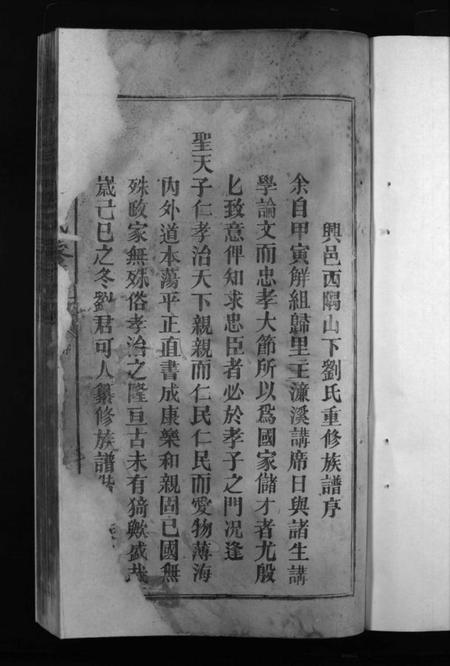 興邑西隅山下劉氏重修族譜序
余自甲寅解組歸里主濂溪講席日與諸生講
學論文而忠孝大節所以爲國家儲才者尤殷
匕致意俾知求忠臣者必於孝子之門况逢
聖天子仁孝治天下親親而仁民仁民而愛物薄海
內外道本蕩平正直書成康樂和親固已國無
殊政家無殊俗孝治之隆亘古未有猗歟盛哉
歲己巳之冬劉君可人纂修族譜